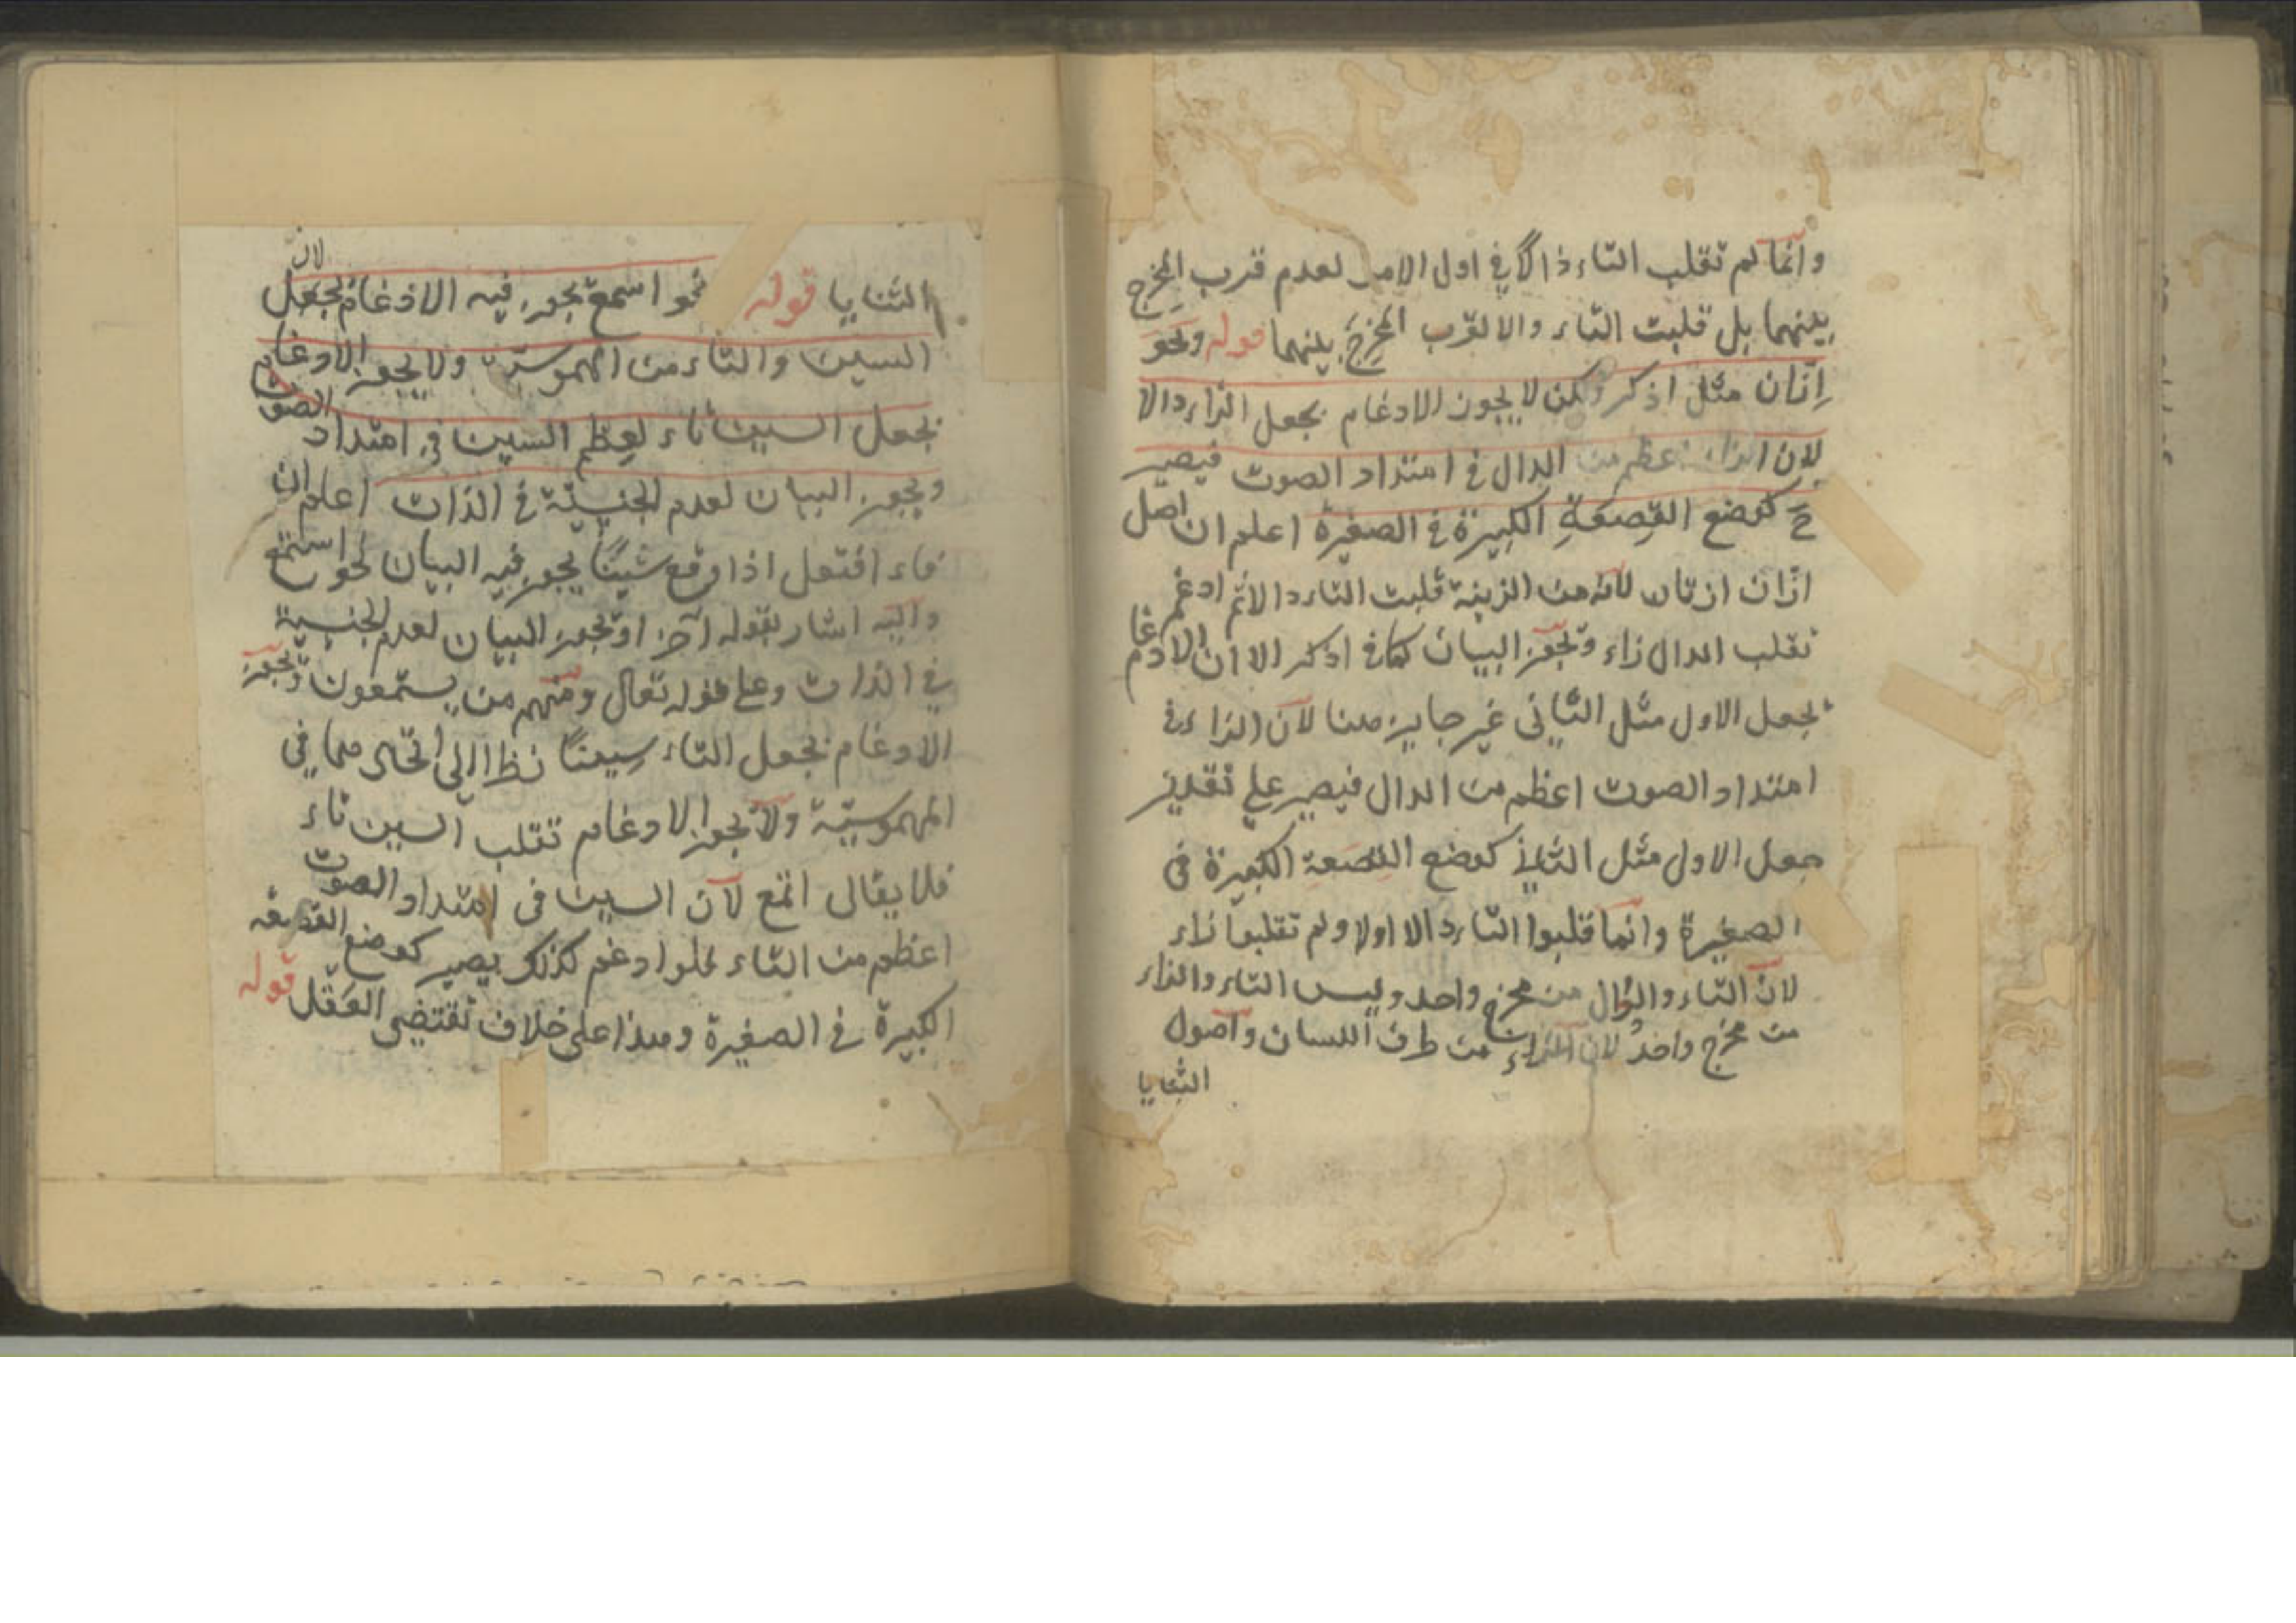 وانما لم تقلب التاء ذالا في اول الامر لعدم قرب المخرج
بينهما بل قلبت التاء دالا لقرب المخرج بينهما قوله ونحو
اِزّان مثل اذكر ولكن لا يجوز الادغام بجعل الزاء دالا
لان الزاء اعظم من الدال في امتداد الصوت فيصير
ح كوضع القصعة الكبيرة في الصغيرة اعلم ان اصل
ازّان ازتان لانه من الزينة قلبت التاء دالا ثم ادغم
تقلب الدال زاء ويجوز البيان كما في اذكر الا ان الادغام
بجعل الاول مثل الثاني غير جايز هنا لان الزاء في
امتداد الصوت اعظم من الدال فيصير على تقدير
جعل الاول مثل الثاني كوضع القصعة الكبيرة في
الصغيرة وانما قلبوا التاء دالا اولا ولم تقلبوا زاء
لان التاء والدال من مخرج واحد وليس التاء والزاء
من مخرج واحد لان الزاء من طرف اللسان واصول
الثنايا
الثنايا قوله نحو اسمع يجوز فيه الادغام بجعل لان
السين والتاء من المهموسة ولا يجوز الادغام
بجعل السين تاء لعظم السين في امتداد الصوت
ويجوز البيان لعدم الجنسية في الذات اعلم ان
فاء افتعل اذا وقع سينًا يجوز فيه البيان نحو استمع
واليه اشار بقوله آخرا ويجوز البيان لعدم الجنسية
في الذات وعلى قوله تعالى ومنهم من يستمعون ويجوز
الادغام بجعل التاء سينًا نظرا الى اتحادهما في
المهموسية ولا يجوز الادغام تقلب السين تاء
فلا يقال اتمع لان السين في امتداد الصوت
اعظم من التاء فلو ادغم كذلك يصير كوضع القصعة
الكبيرة في الصغيرة وهذا على خلاف تقتضى العقل قوله